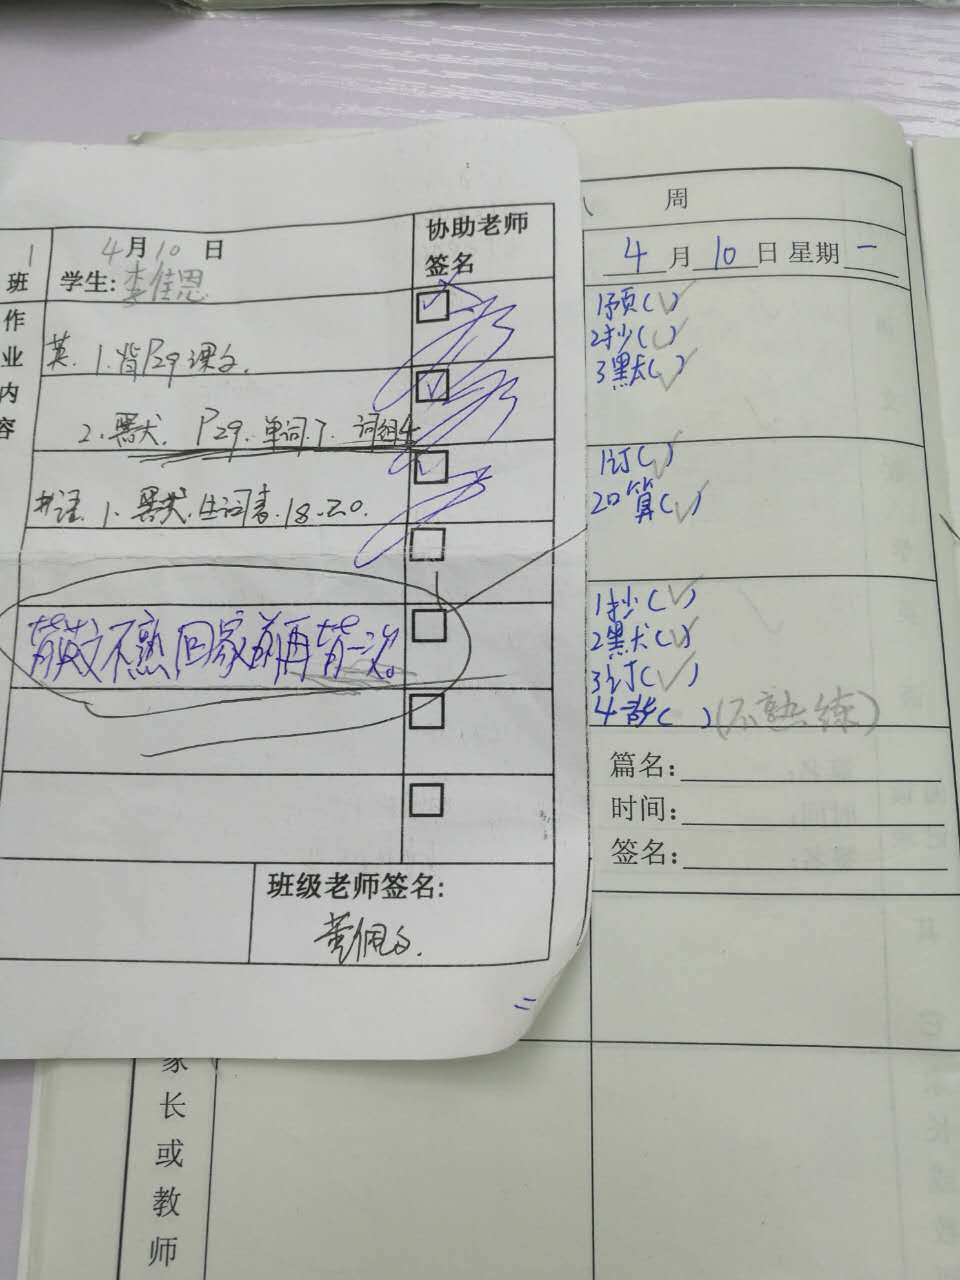 1班
4月10日
学生:李佳恩
协助老师
签名
作业内容
英.1.背P29课文.
2.默.P29.单词7.词组4
书语.1.默.生词表.18-20.
背英文不熟回家前再背一次。
班级老师签名:
周
4月10日 星期一
1预(✓)
2抄(✓)
3默(✓)
1订(✓)
2口算(✓)
1抄(✓)
2默(✓)
3订(✓)
4背( )(不熟练)
篇名:
时间:
签名:
家长或教师